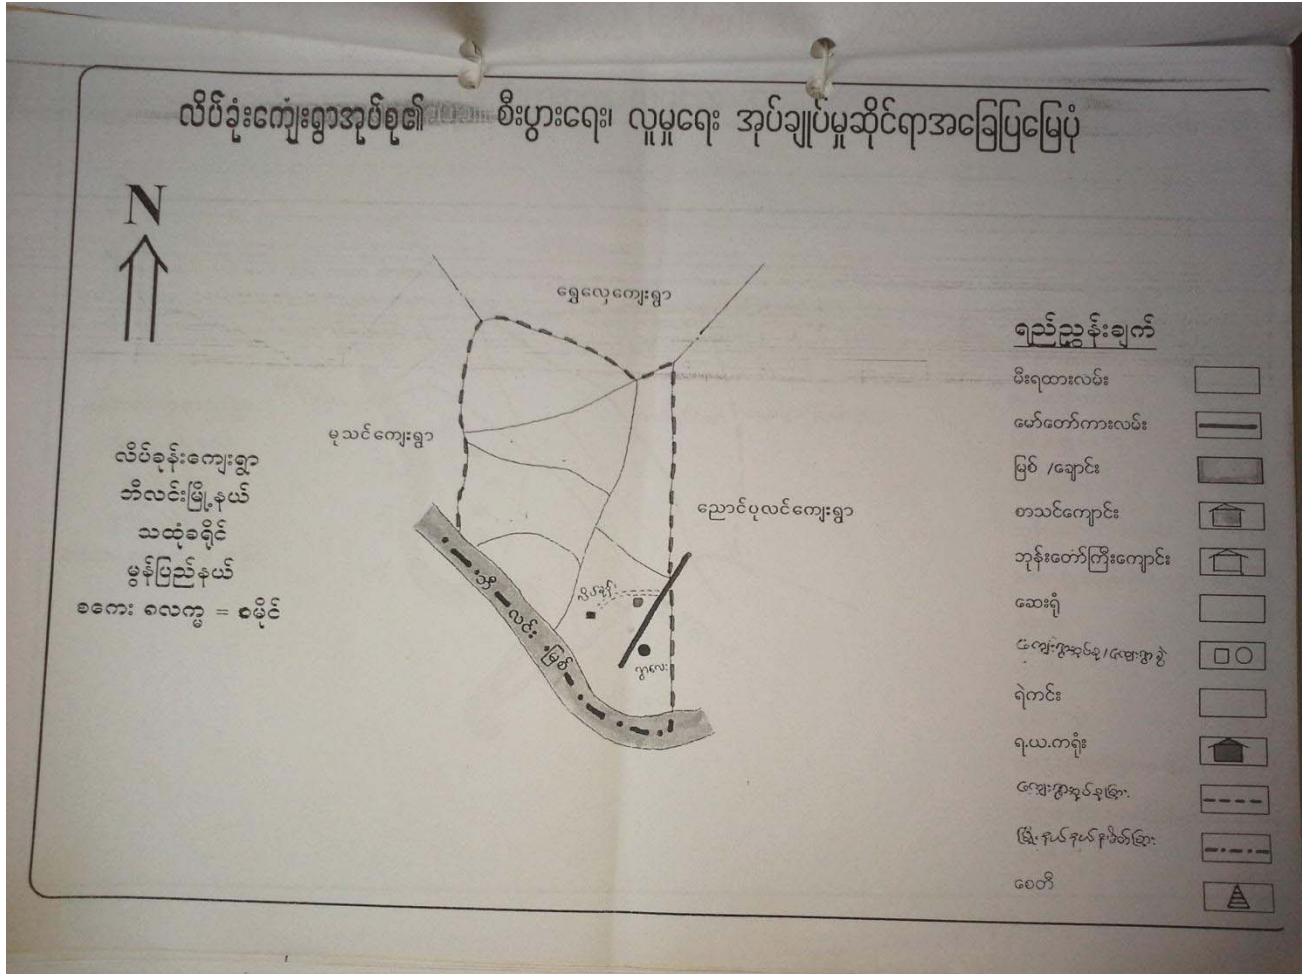 လိပ်ခုံးကျေးရွာအုပ်စု၏ စီးပွားရေး၊ လူမှုရေး အုပ်ချုပ်မှုဆိုင်ရာအခြေပြမြေပုံ
N
ရွှေလှေကျေးရွာ
မုသင်ကျေးရွာ
ညောင်ပုလင်ကျေးရွာ
လိပ်ခုန်းကျေးရွာ
ဘီလင်းမြို့နယ်
သထုံခရိုင်
မွန်ပြည်နယ်
စကေး ၈လက္မ = ၁မိုင်
ဘီလင်းမြစ်
ရွာလေး
ရည်ညွှန်းချက်
မီးရထားလမ်း
မော်တော်ကားလမ်း
မြစ် /ချောင်း
စာသင်ကျောင်း
ဘုန်းတော်ကြီးကျောင်း
ဆေးရုံ
ကျေးရွာအုပ်စု/ကျေးရွာခွဲ
ရဲကင်း
ရ.ယ.ကရုံး
ကျေးရွာအုပ်စုခြား
မြို့နယ်နယ်နိမိတ်ခြား
စေတီ